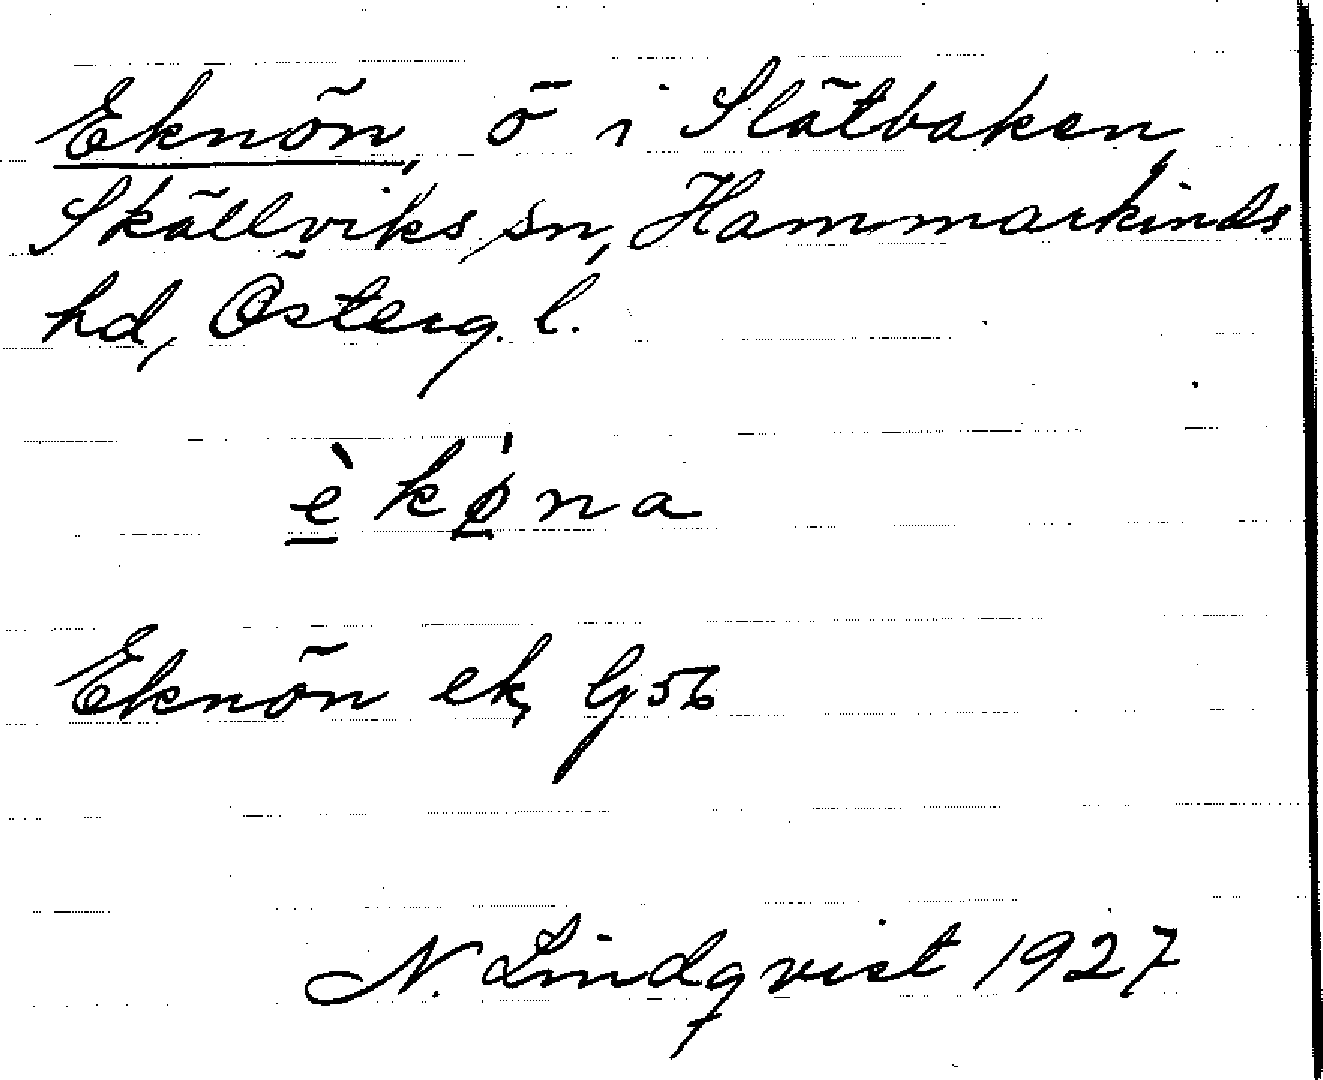 Eknön, ö i Slätbaken,
Skällviks sn, Hammarkinds
hd, Österg. l.
è̲kǿ̲na
Eknön ek, Gj 56
N. Lindqvist 1927